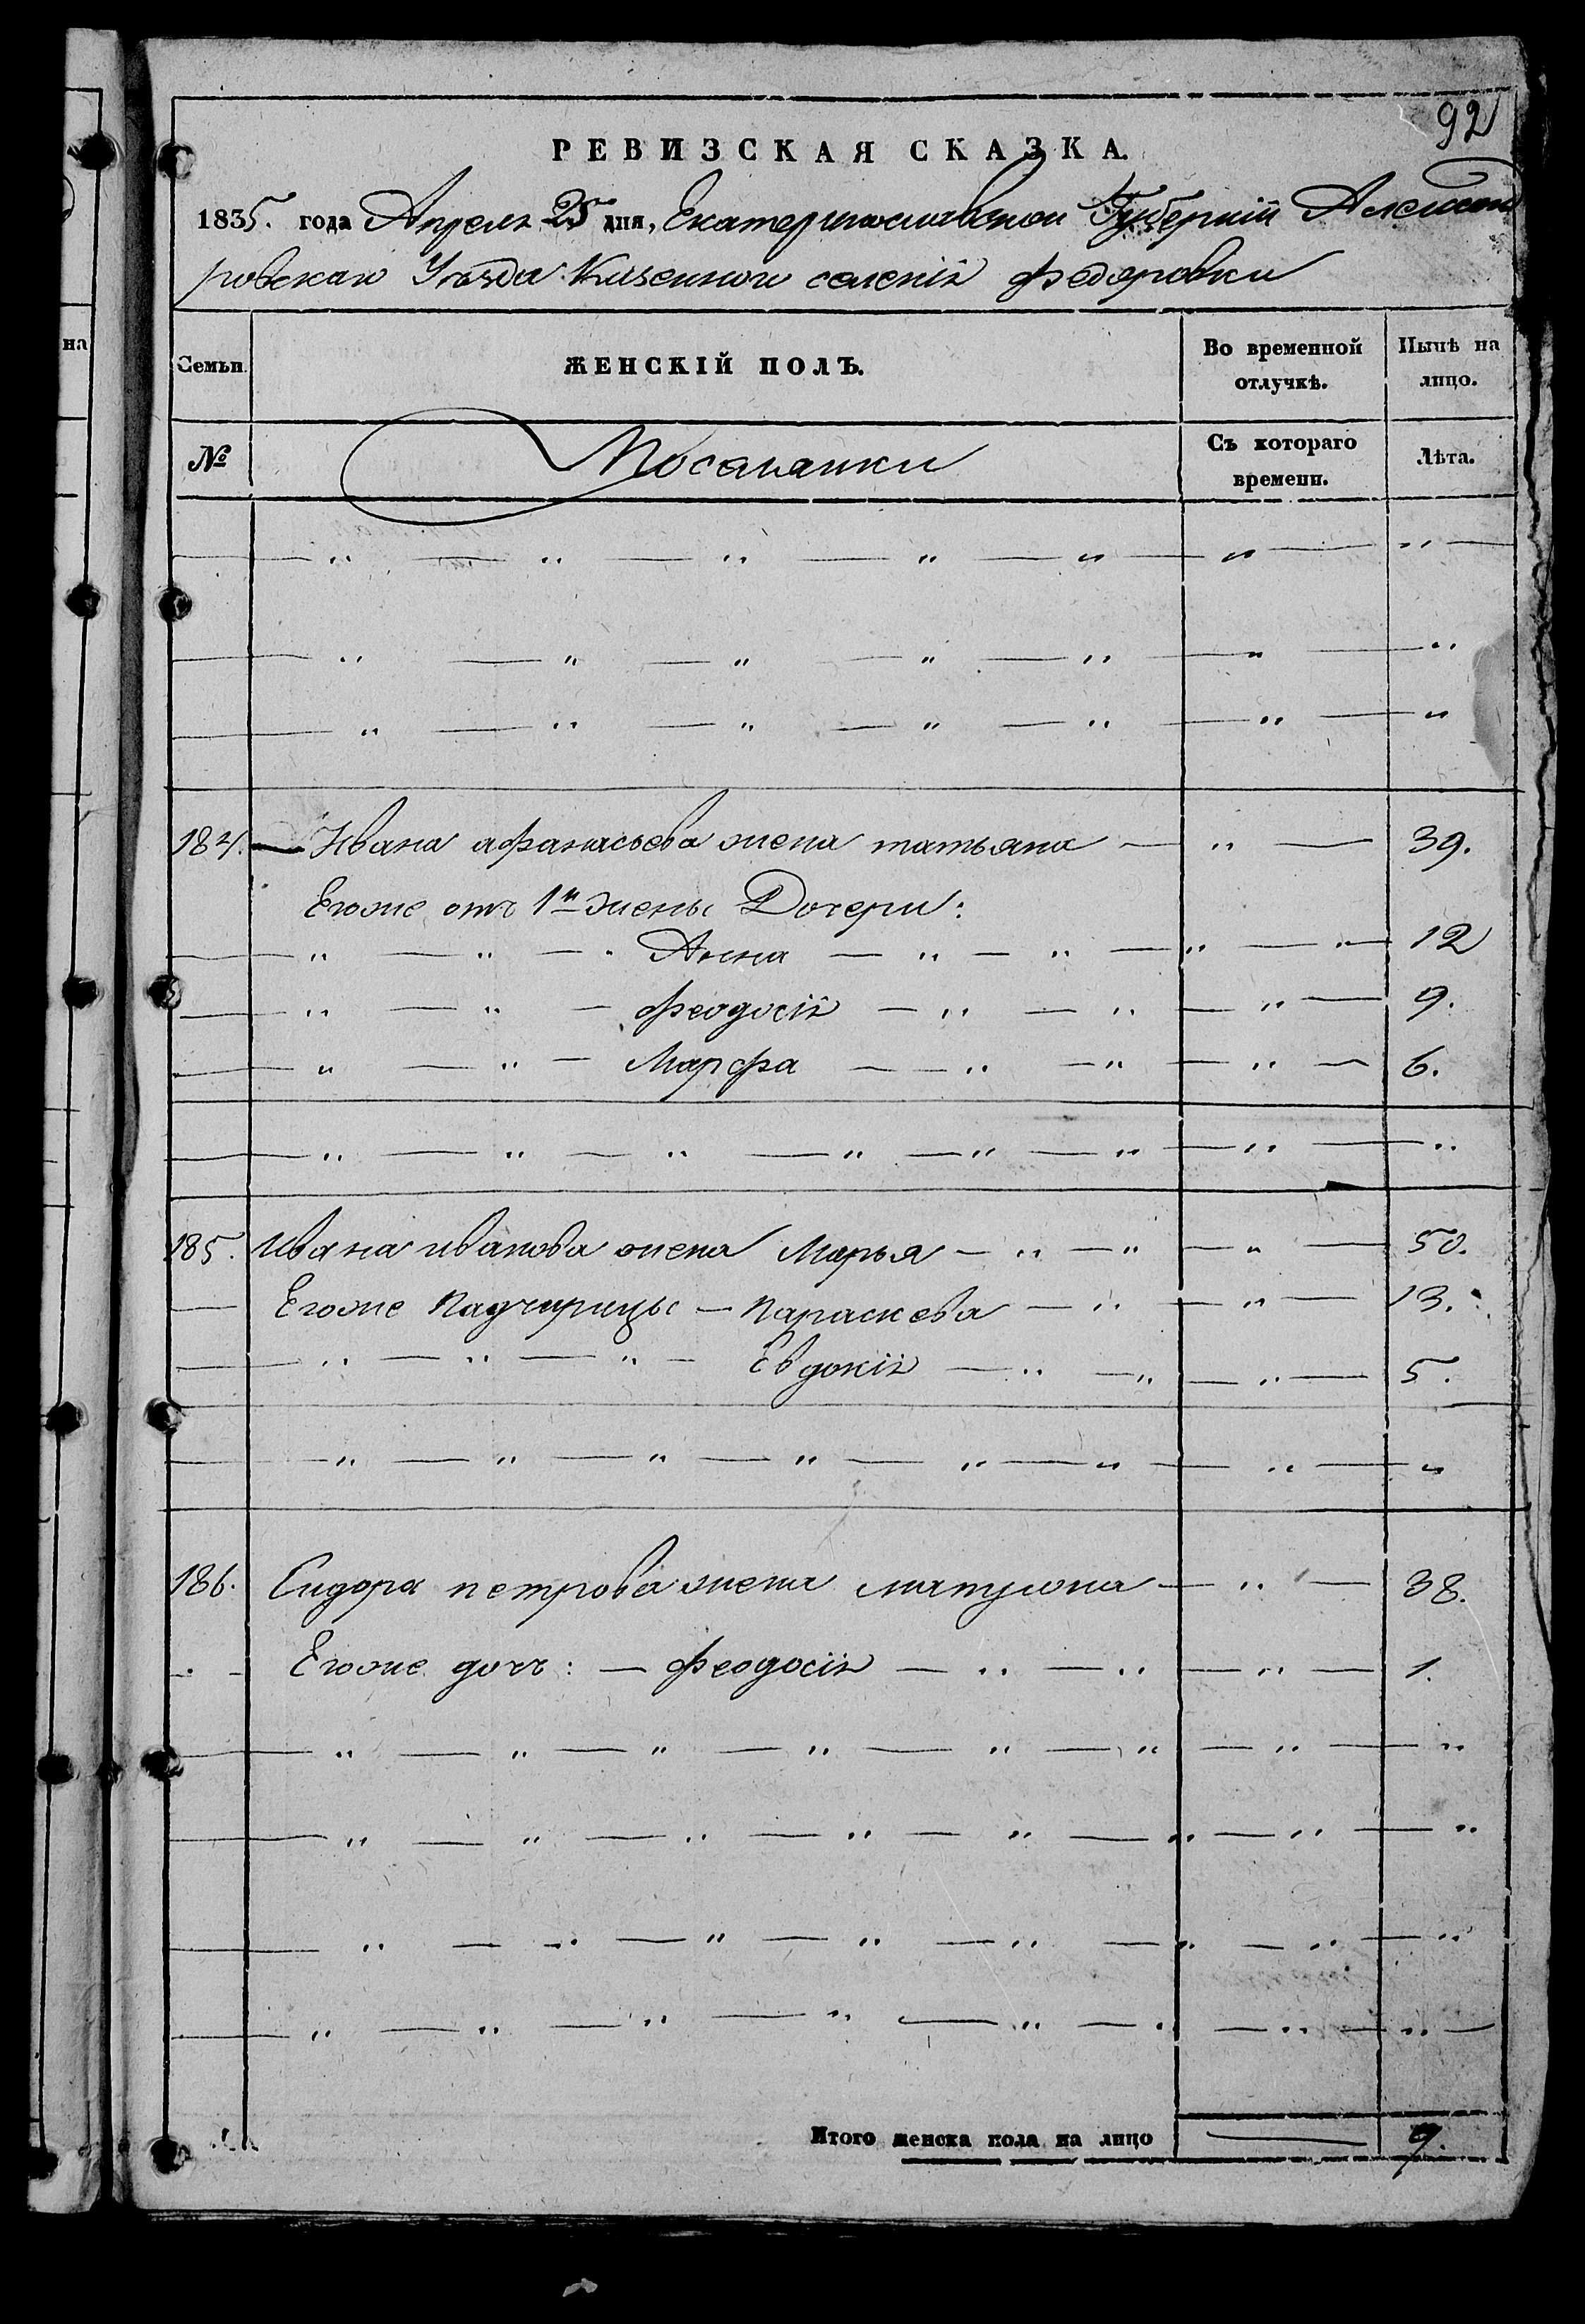 92
РЕВИЗСКАЯ СКАЗКА.
1835. года Апреля 25 дня, Екатеринославской Губернии Александ
ровскаго Уезда Казенного селения федоровки
на
Семьи.
ЖЕНСКІЙ ПОЛЪ.
Во временной отлучкѣ.
Нынѣ на лицо.
№
Съ котораго времени.
Лѣта.
184. Ивана афанасьева жена татьяна 39.
Егоже отъ 1й жены Дочери:
Анна 12
феодосія 9.
Марфа 6.
185. Ивана иванова жена Марья 50.
Егоже падчерицы — параскева 13.
Евдокія 5.
186. Сидора петрова жена 38.
Егоже дочь: — феодосія 1.
Итого женска пола на лицо 9.